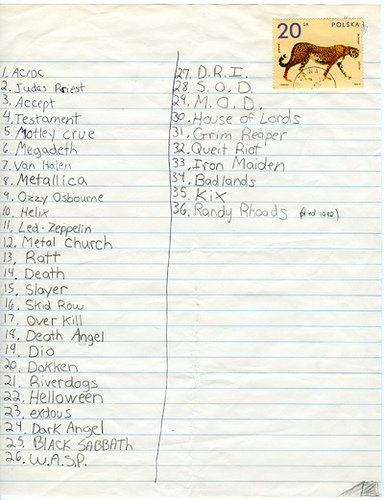 20 GR POLSKA
1. AC/DC
2. Judas Priest
3. Accept
4. Testament
5. Motley crue
6. Megadeth
7. Van Halen
8. Metallica
9. Ozzy Osbourne
10. Helix
11. Led-Zeppelin
12. Metal Church
13. Ratt
14. Death
15. Slayer
16. Skid Row
17. Over Kill
18. Death Angel
19. Dio
20. Dokken
21. Riverdogs
22. Helloween
23. exdous
24. Dark Angel
25. BLACK SABBATH
26. W.A.S.P.
27. D.R.I.
28. S.O.D.
29. M.O.D.
30. House of Lords
31. Grim Reaper
32. Queit Riot
33. Iron Maiden
34. Badlands
35. Kix
36. Randy Rhoads (died 1982)